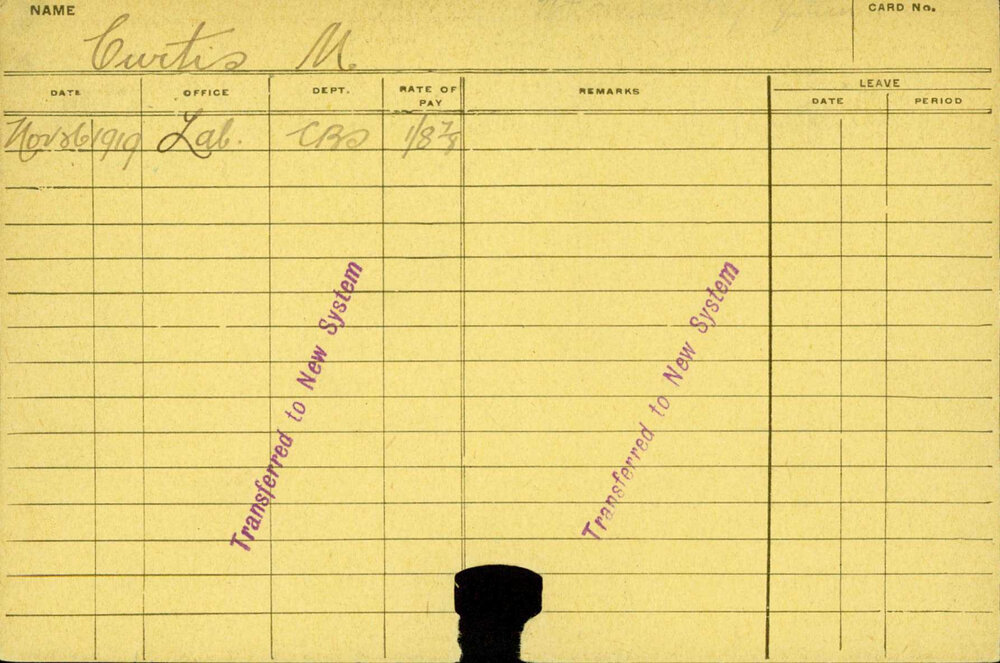 NAME
CARD No.
Curtis M.
DATE OFFICE DEPT. RATE OF PAY REMARKS LEAVE
DATE PERIOD
Nov 26 1919 Lab. CBS 1/8 7/8
Transferred to New System
Transferred to New System